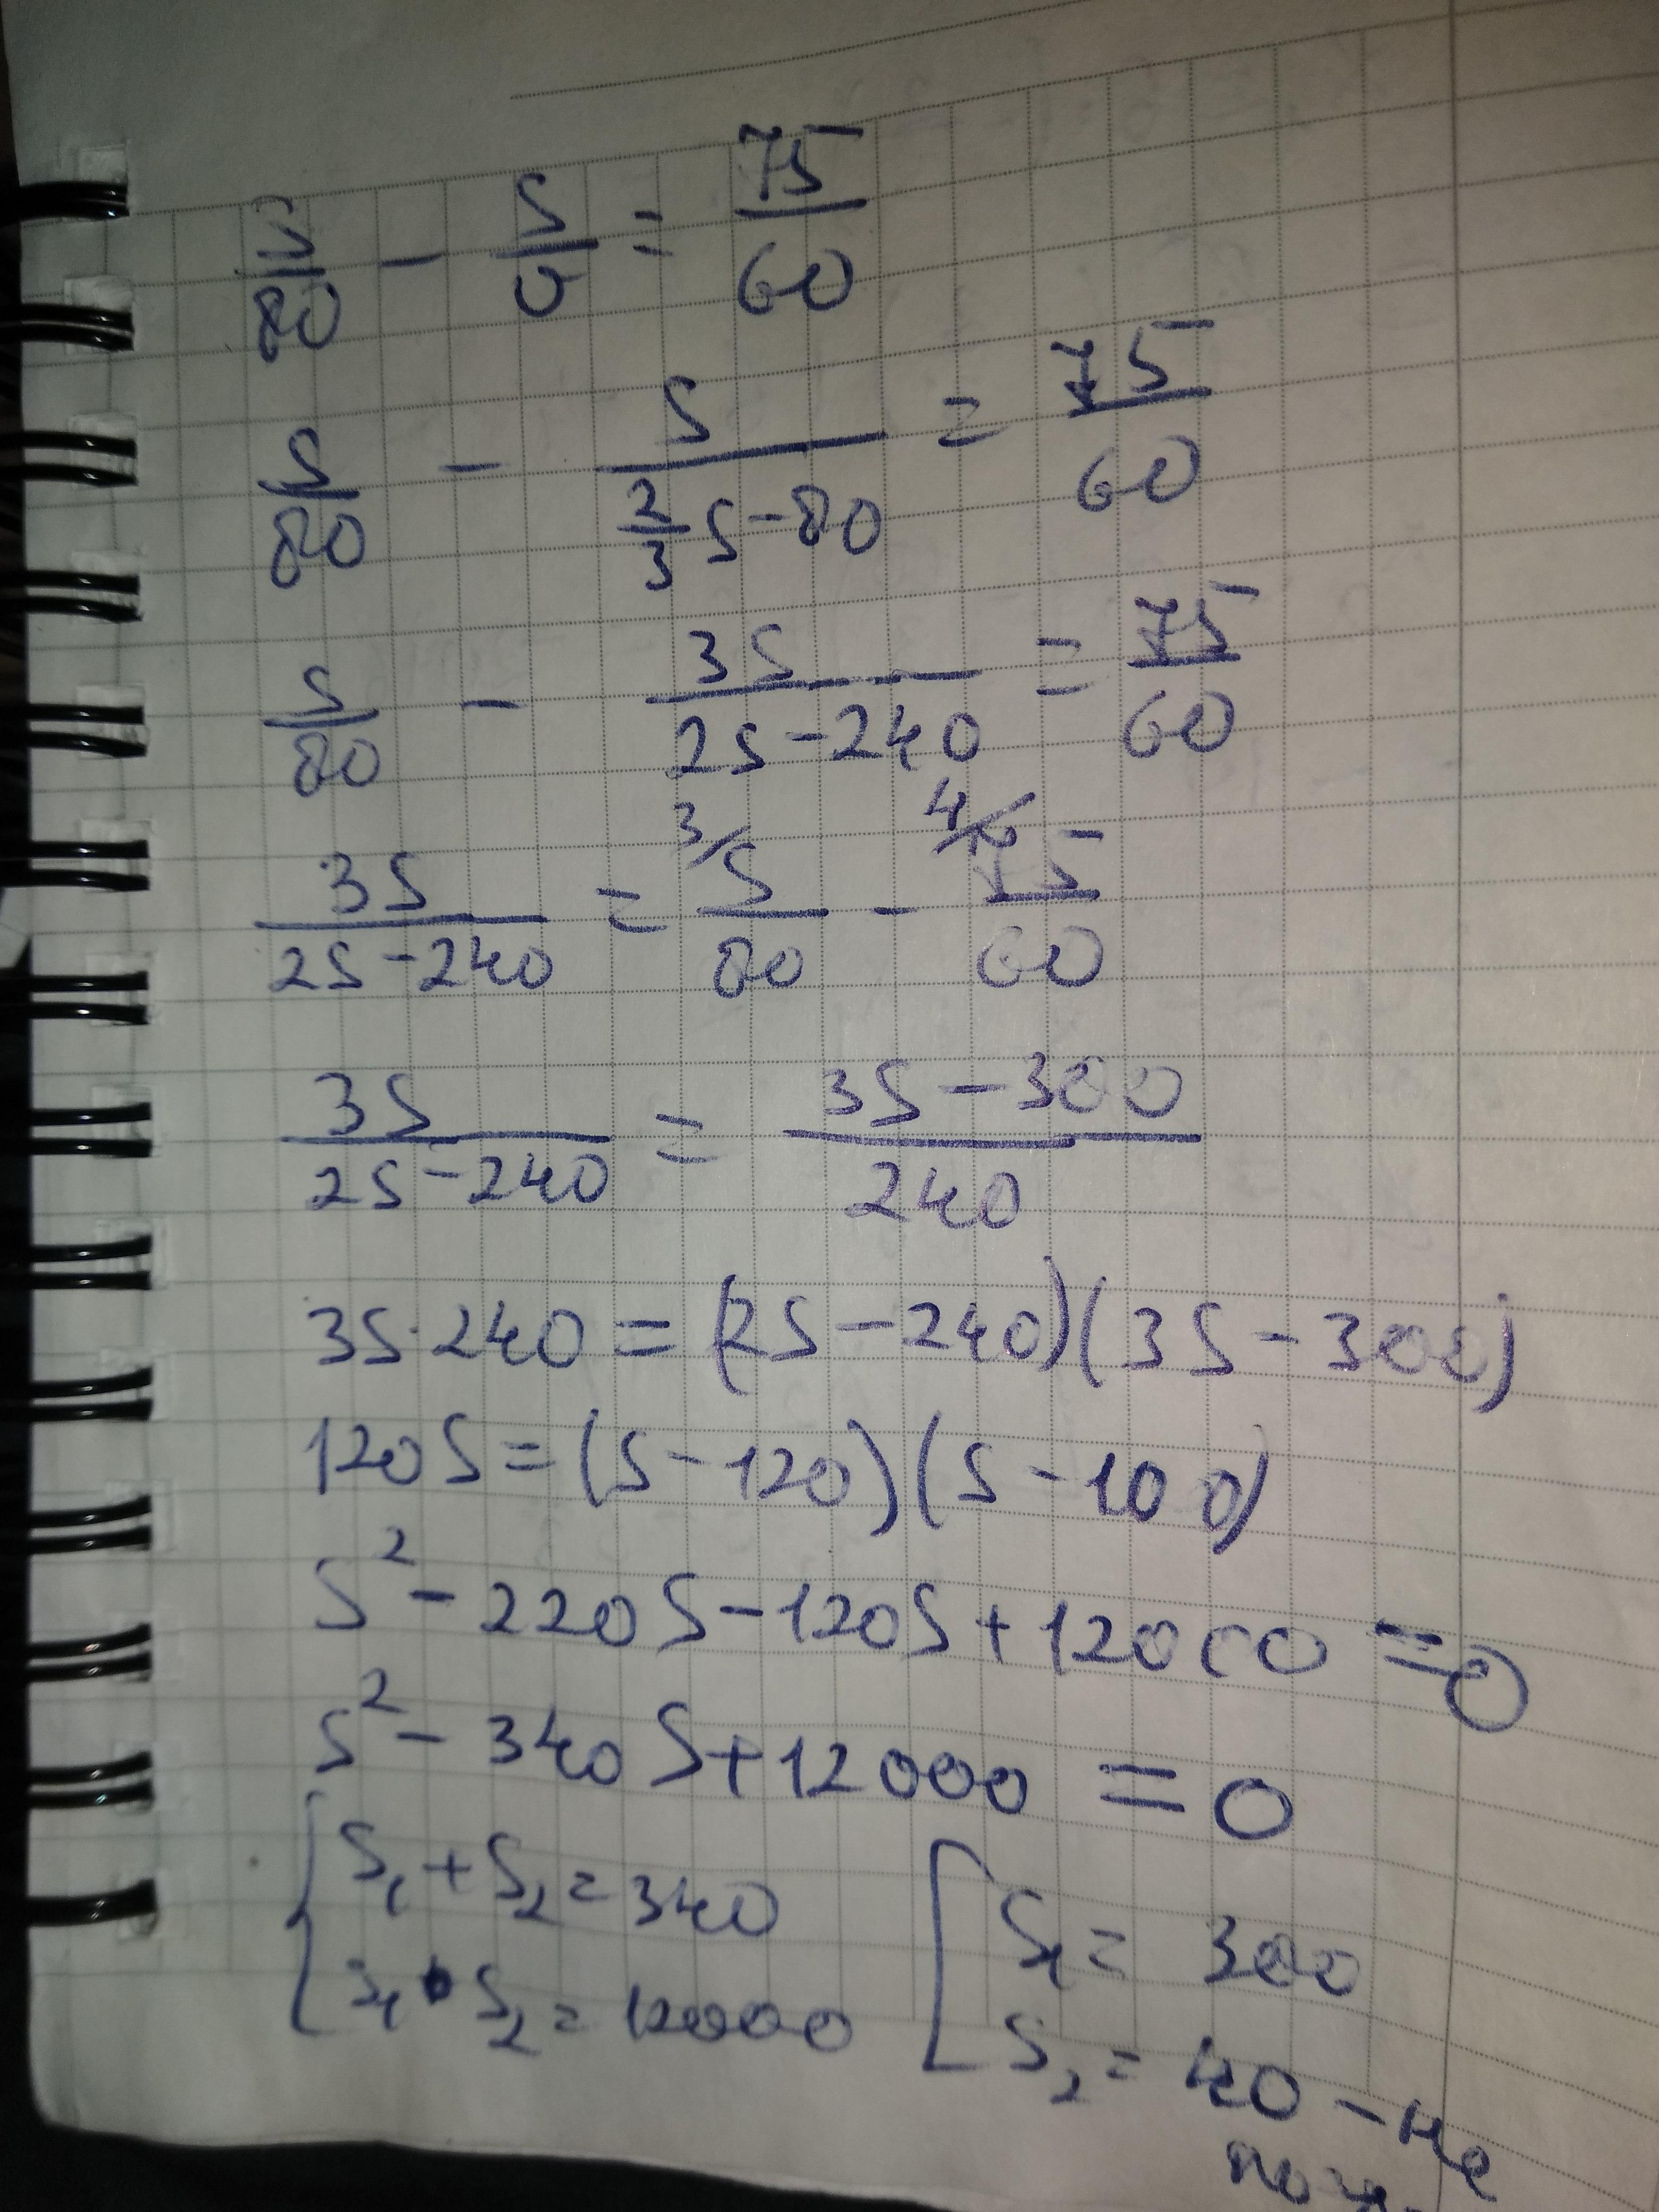 S/80 - S/υ = 75/60
S/80 - S/(2/3 S - 80) = 75/60
S/80 - 3S/(2S - 240) = 75/60
3S/(2S - 240) = 3/ S/80 - 4/ 75/60
3S/(2S - 240) = (3S - 300)/240
3S·240 = (2S - 240)(3S - 300)
120S = (S - 120)(S - 100)
S² - 220S - 120S + 12000 = 0
S² - 340S + 12000 = 0
{ S₁ + S₂ = 340 [ S₁ = 300
S₁ • S₂ = 12000 S₂ = 40 - не